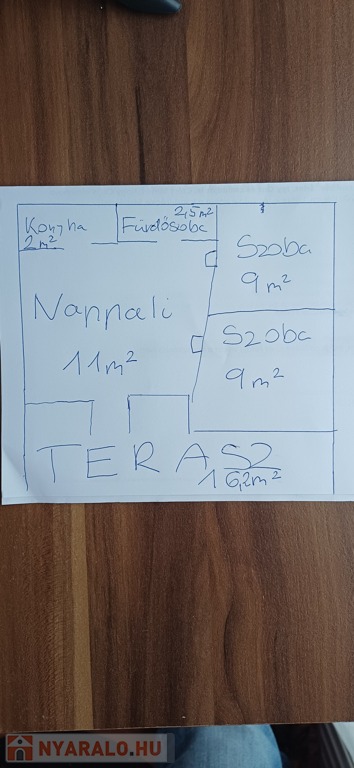 Konyha
2 m²
2,5 m²
Fürdőszoba
Szoba
9 m²
Nappali
11 m²
Szoba
9 m²
TERASZ
16,2 m²
NYARALO.HU